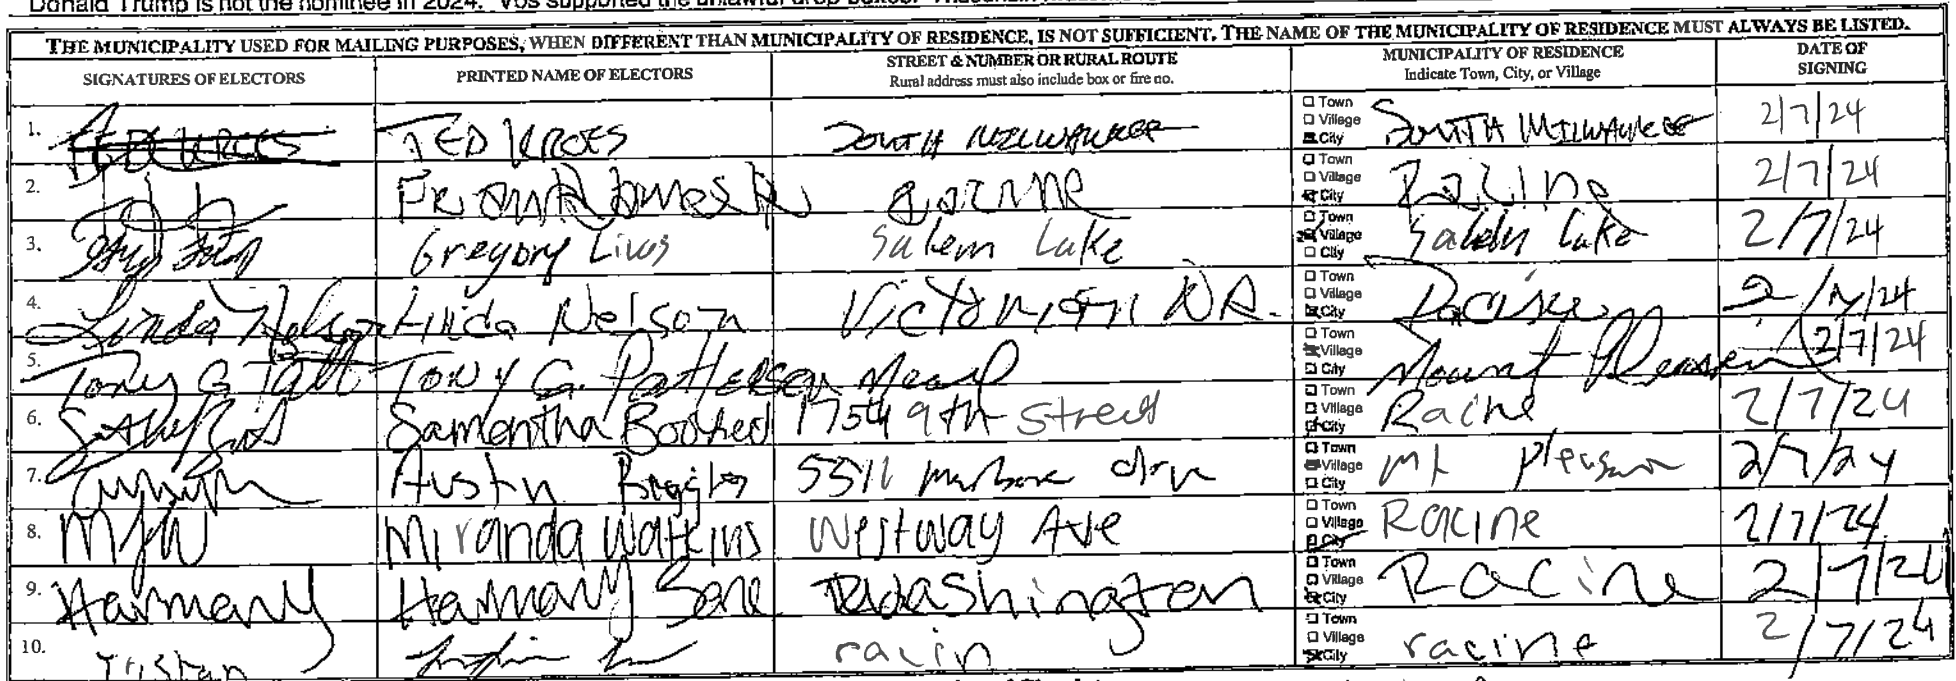 Donald Trump is not the nominee in 2024. Vos supported the unlawful drop boxes.
THE MUNICIPALITY USED FOR MAILING PURPOSES, WHEN DIFFERENT THAN MUNICIPALITY OF RESIDENCE, IS NOT SUFFICIENT. THE NAME OF THE MUNICIPALITY OF RESIDENCE MUST ALWAYS BE LISTED.
SIGNATURES OF ELECTORS PRINTED NAME OF ELECTORS STREET & NUMBER OR RURAL ROUTE Rural address must also include box or fire no. MUNICIPALITY OF RESIDENCE Indicate Town, City, or Village DATE OF SIGNING
1. TED KROES TED KROES SOUTH MILWAUKEE Town Village City SOUTH MILWAUKEE 2/7/24
2. Town Village City Racine 2/7/24
3. Gregory Salem Lake Town Village City Salem Lake 2/7/24
4. Linda Nelson Linda Nelson Victorian DR. Town Village City 2/7/24
5. Tony G Patt Tony G. Patterson Mead Town Village City Mount Pleasant 2/7/24
6. Samantha 1754 9th Street Town Village City Racine 2/7/24
7. Austin 5511 Town Village City Mt Pleasant 2/7/24
8. MJW Miranda Watkins Westway Ave Town Village City Racine 2/7/24
9. Harmany Harmany Washington Town Village City Racine 2/7/24
10. Tristan racin Town Village City racine 2/7/24